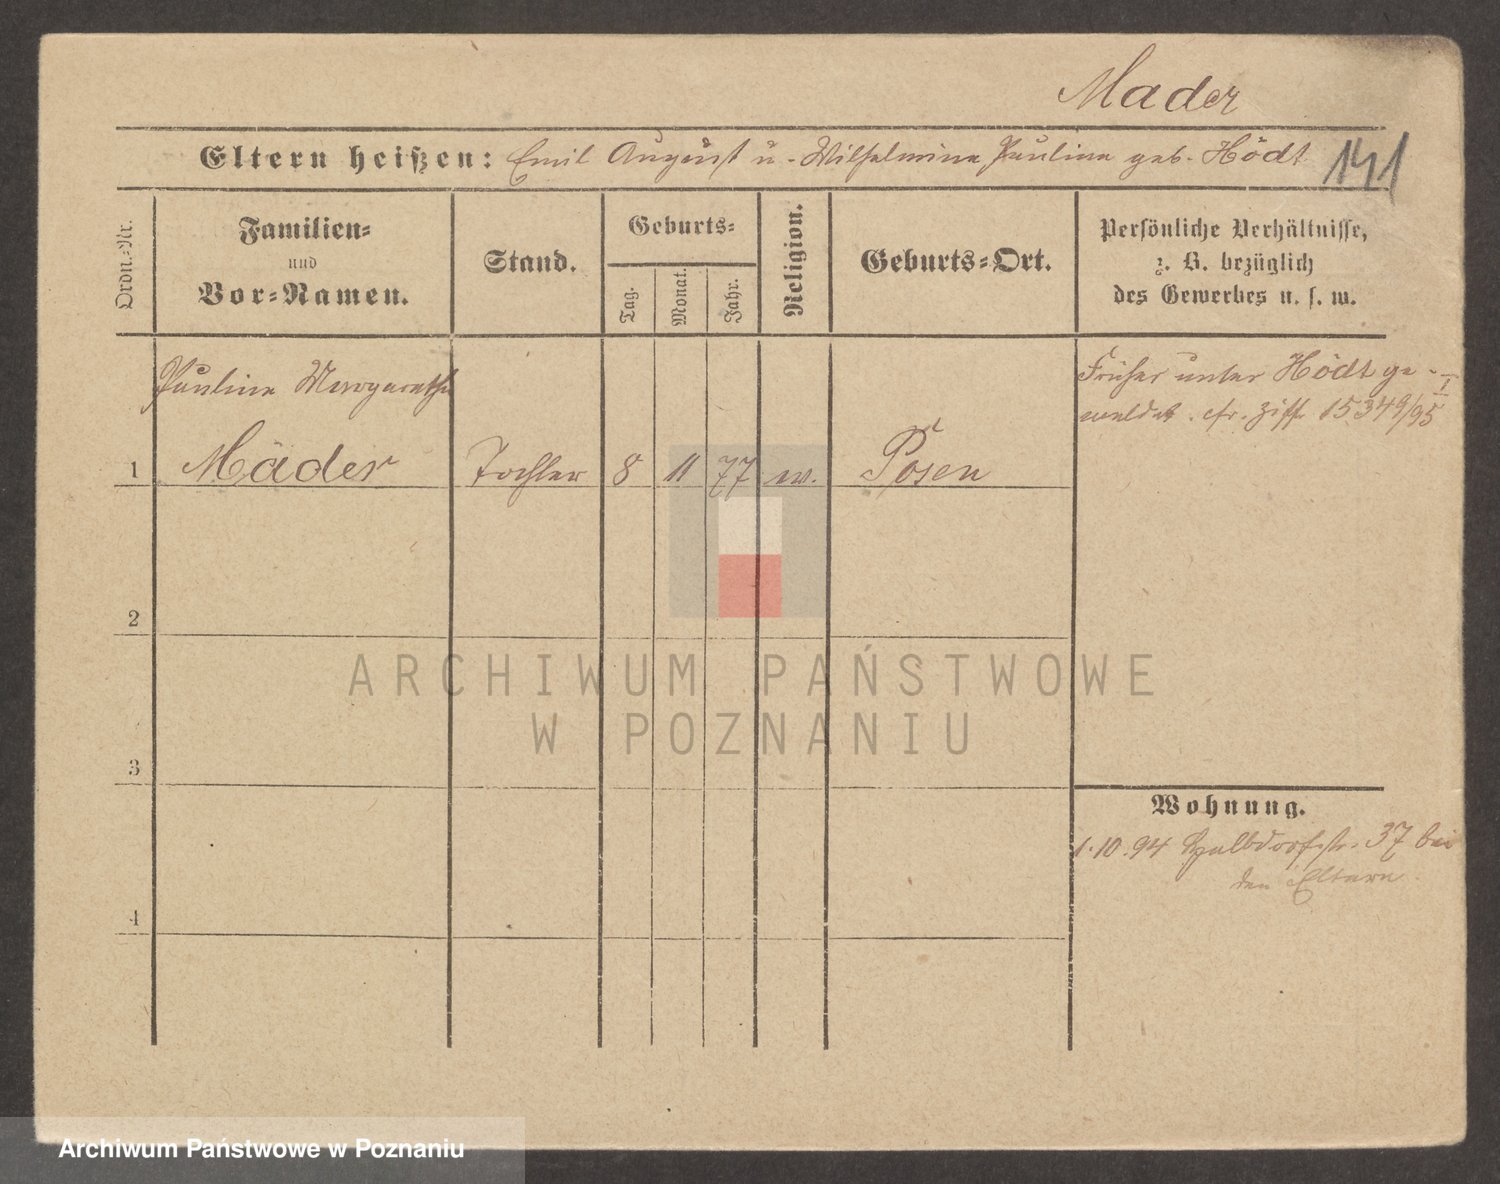 Mader
Eltern heißen: Emil August u. Wilhelmine Pauline geb. Hödt 141
Ordn.-Nr.
Familien-
und
Vor-Namen.
Stand.
Geburts-
Tag.
Monat.
Jahr.
Religion.
Geburts-Ort.
Persönliche Verhältnisse,
z. B. bezüglich
des Gewerbes u. s. w.
Pauline Margarethe
1 Mäder Tochter 8 11 77 ev. Posen
Früher unter Hödt ge-
meldet. cfr. Ziff. 15349/95
2
3
4
Wohnung.
1.10.94 Halbdorfstr. 37 bei
den Eltern
ARCHIWUM PAŃSTWOWE
W POZNANIU
Archiwum Państwowe w Poznaniu